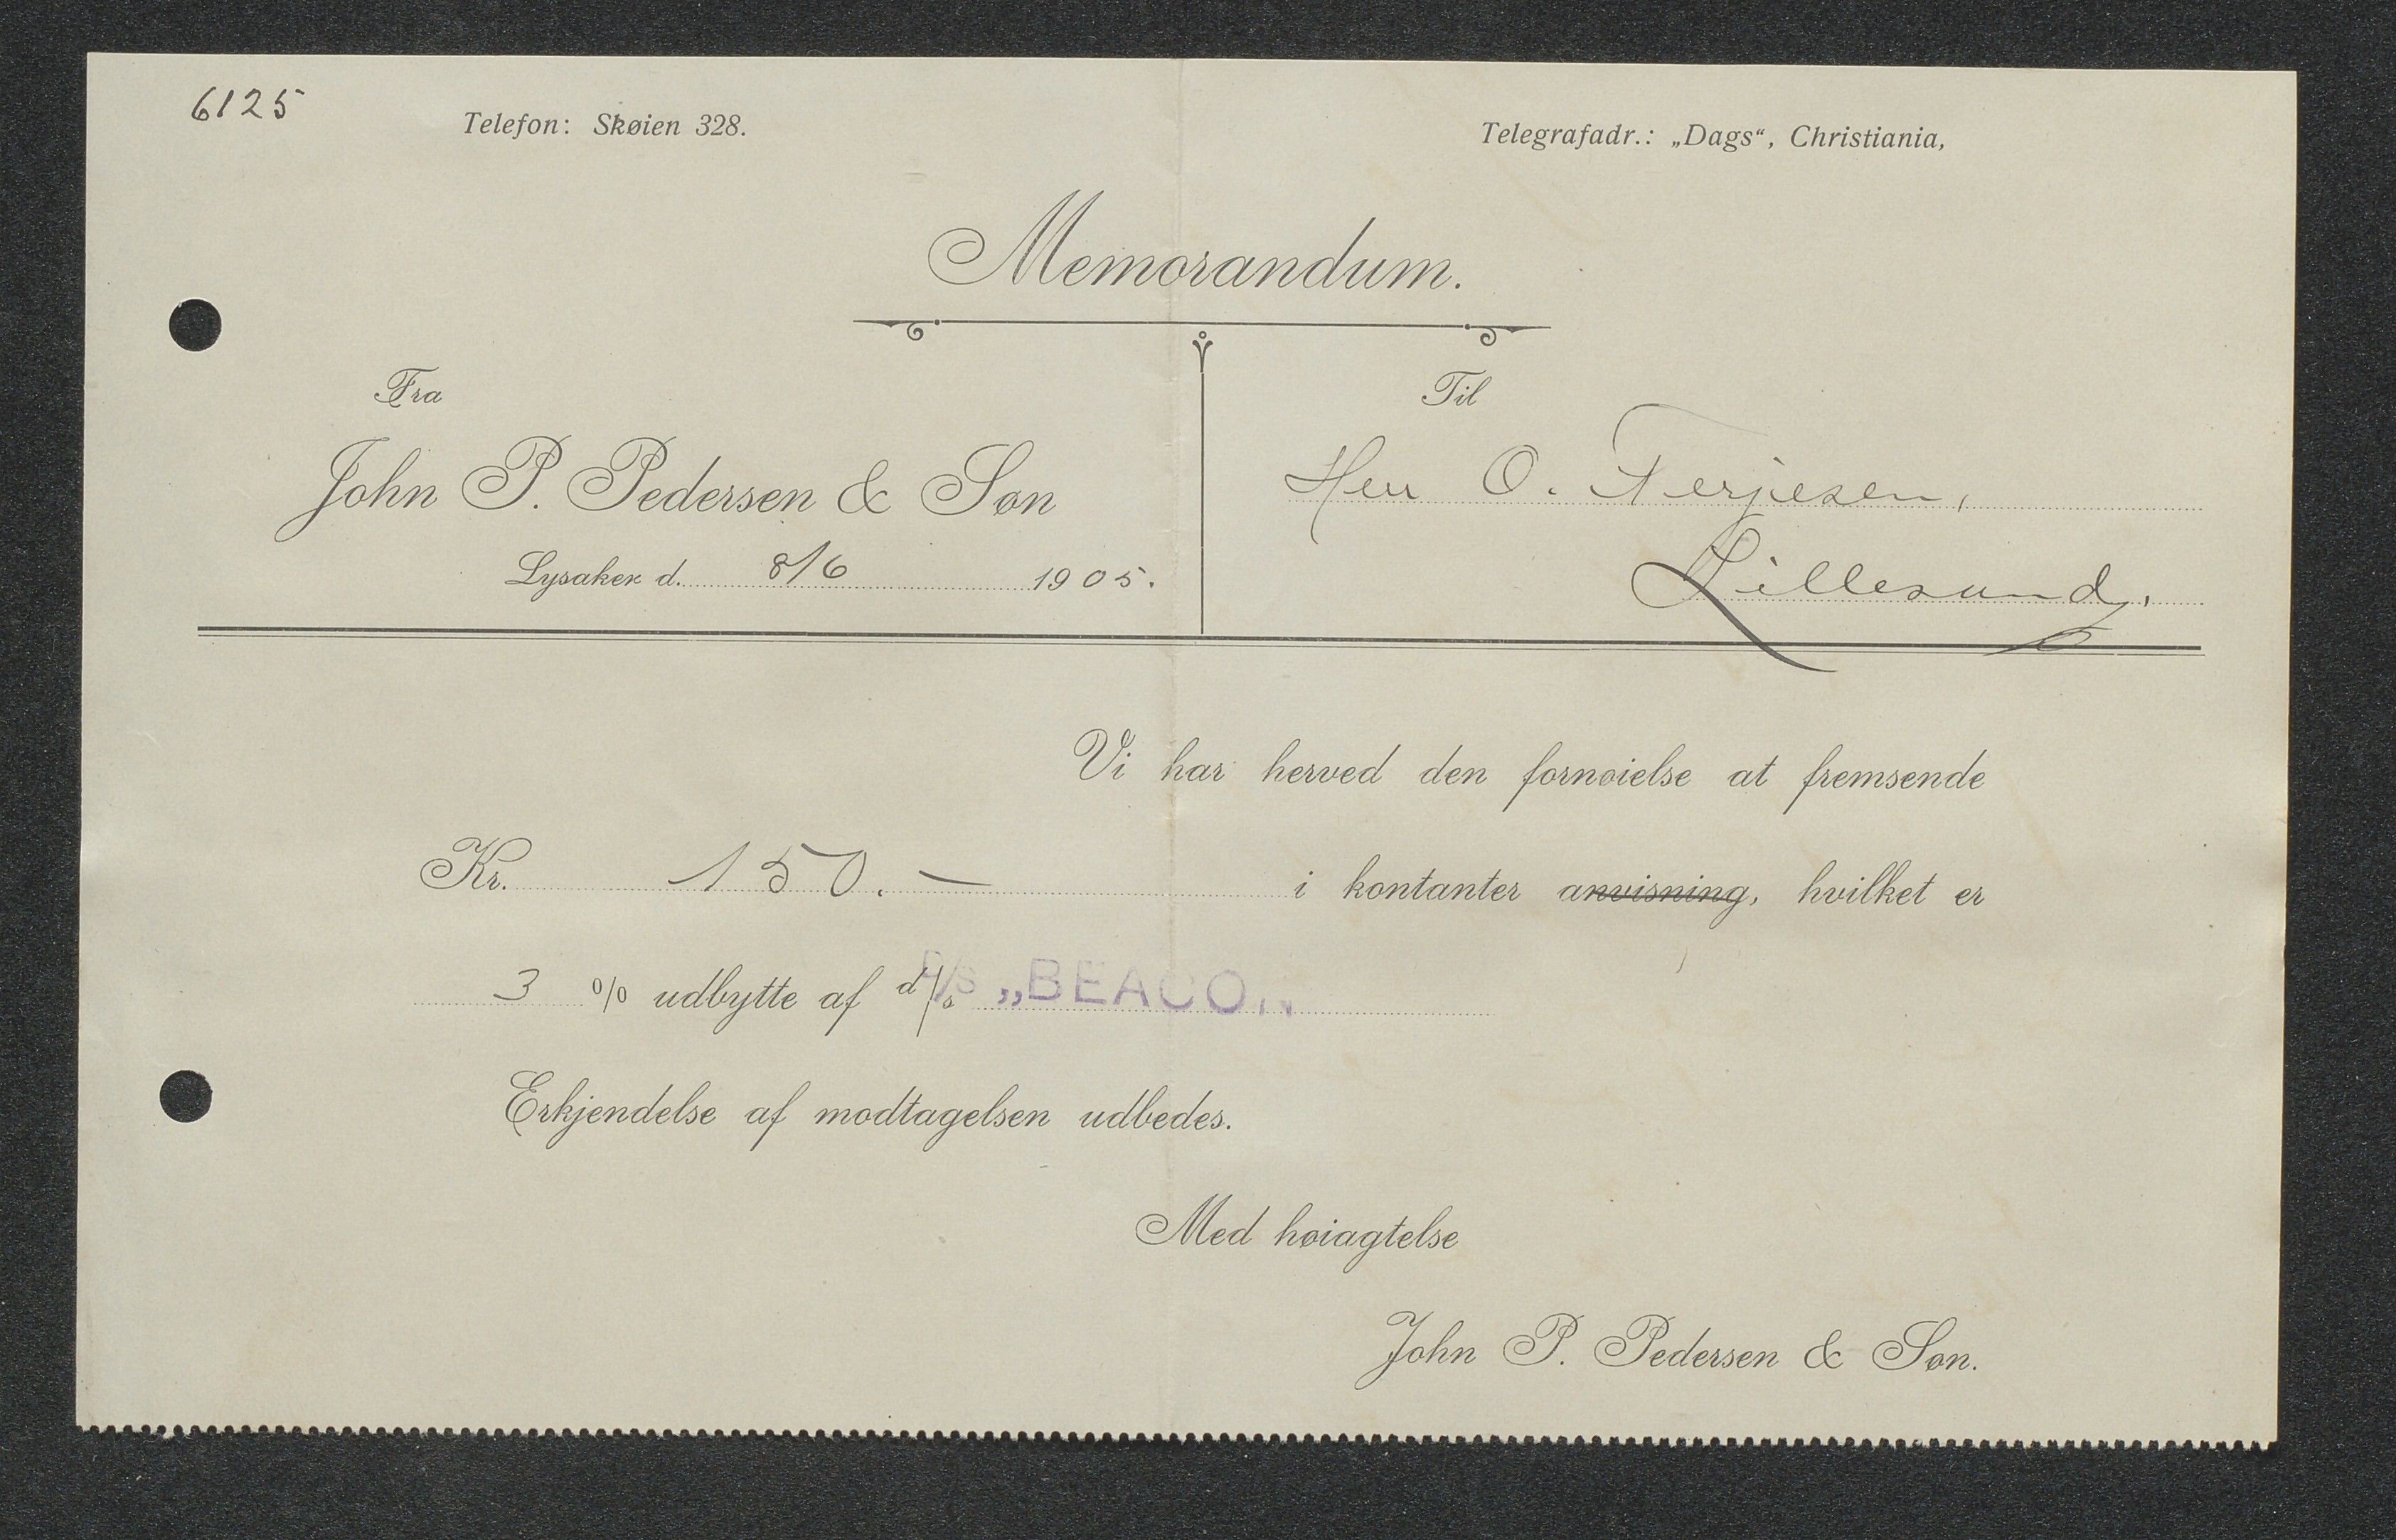 6125
Telefon: Skøien 328.
Telegrafadr.: „Dags“, Christiania,
Memorandum.
Fra
John P. Pedersen & Søn
Lysaker d. 8/6 1905.
Til
Herr O. Terjesen,
Lillesand,
Vi har herved den fornøielse at fremsende
Kr. 150.— i kontanter anvisning, hvilket er
3 % udbytte af d/s „BEACO„
Erkjendelse af modtagelsen udbedes.
Med høiagtelse
John P. Pedersen & Søn.